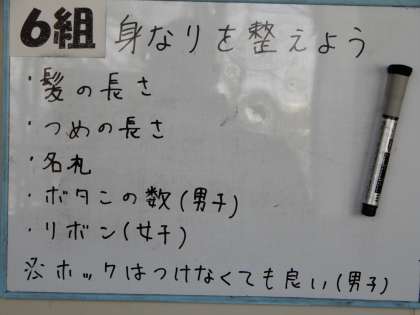 6組 身なりを整えよう
・髪の長さ
・つめの長さ
・名札
・ボタンの数(男子)
・リボン(女子)
※ホックはつけなくても良い(男子)